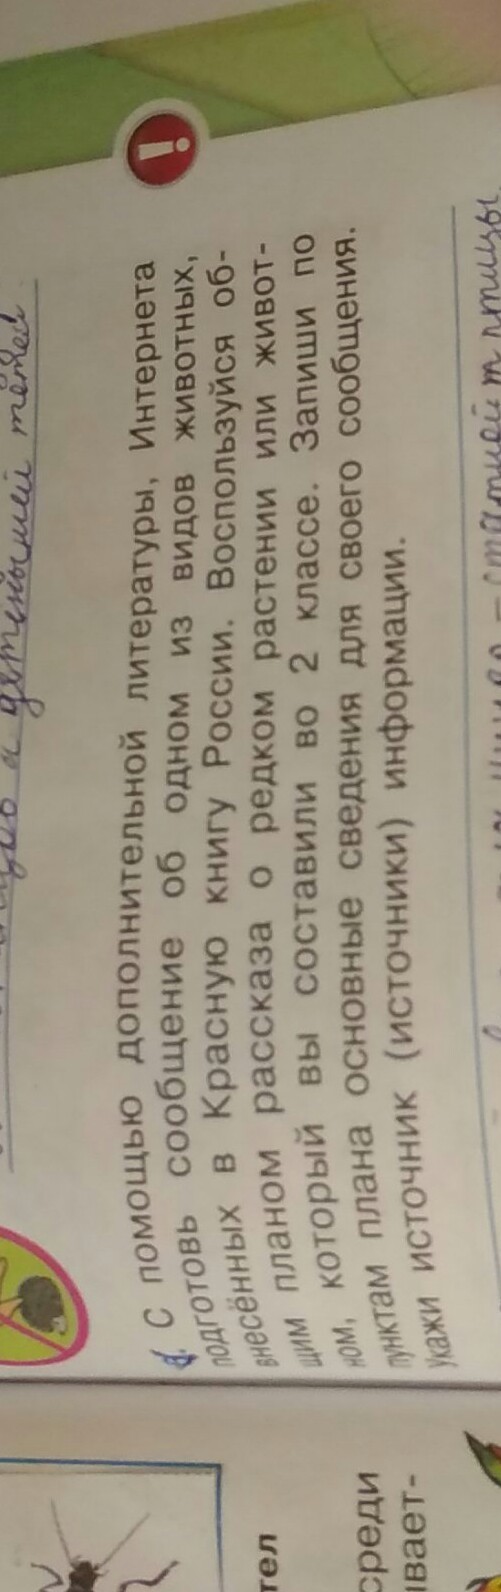 детёнышей тётей
С помощью дополнительной литературы, Интернета
подготовь сообщение об одном из видов животных,
внесённых в Красную книгу России. Воспользуйся об-
щим планом рассказа о редком растении или живот-
ном, который вы составили во 2 классе. Запиши по
пунктам плана основные сведения для своего сообщения.
Укажи источник (источники) информации.
птицы
тел
среди
вает-